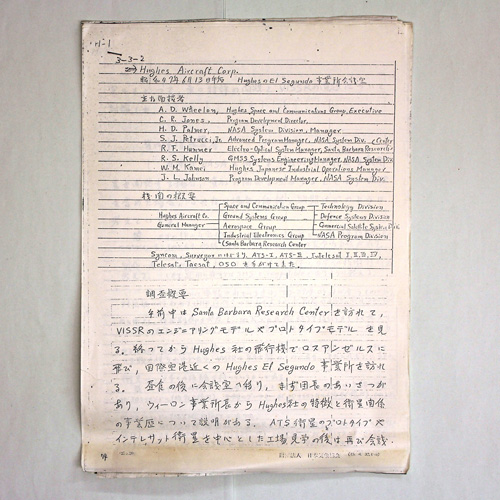 3-3-2
Hughes Aircraft Corp.
昭和47年6月13日午后 HughesのEl Segundo事業所会議室
主な面談者
A. D. Wheelon, Hughes Space and Communications Group, Executive
C. R. Jones, Program Development Director.
H. D. Palmer, NASA System Division, Manager
S. J. Petrucci, Jr. Advanced Program Manager, NASA System Div.
R. F. Hummer Electro-Optical System Manager, Santa Barbara Research Center
R. S. Kelly GMSS Systems Engineering Manager, NASA System Div.
W. M. Kamei Hughes Japanese Industrial Operations Manager
J. L. Johnson Program Development Manager, NASA System Div.
機関の概要
Space and Communication Group Technology Division
Hughes Aircraft Co. Ground Systems Group Defence Systems Division
General Manager Aerospace Group Commercial Satellite System
Industrial Electronics Group NASA Program Division
Santa Barbara Research Center
Syncom, Surveyor ATS-I, ATS-II, Intelsat I, II, III, IV,
Telesat, Tacsat, OSO を手がけてきた。
調査概要
午前中は Santa Barbara Research Center を訪れて,
VISSRのエンジニアリングモデルやプロトタイプモデルを見
る。終ってから Hughes 社の飛行機でロスアンゼルスに
飛び,国際空港近くの Hughes El Segundo 事業所を訪れ
る。昼食の後に会議室へ移り,まず団長のあいさつが
あり,ウィーロン事業所長から Hughes社の特徴と衛星関係
の事業歴について説明がある。ATS衛星のプロトタイプや
インテルサット衛星を中心とした工場見学の後は再び会議